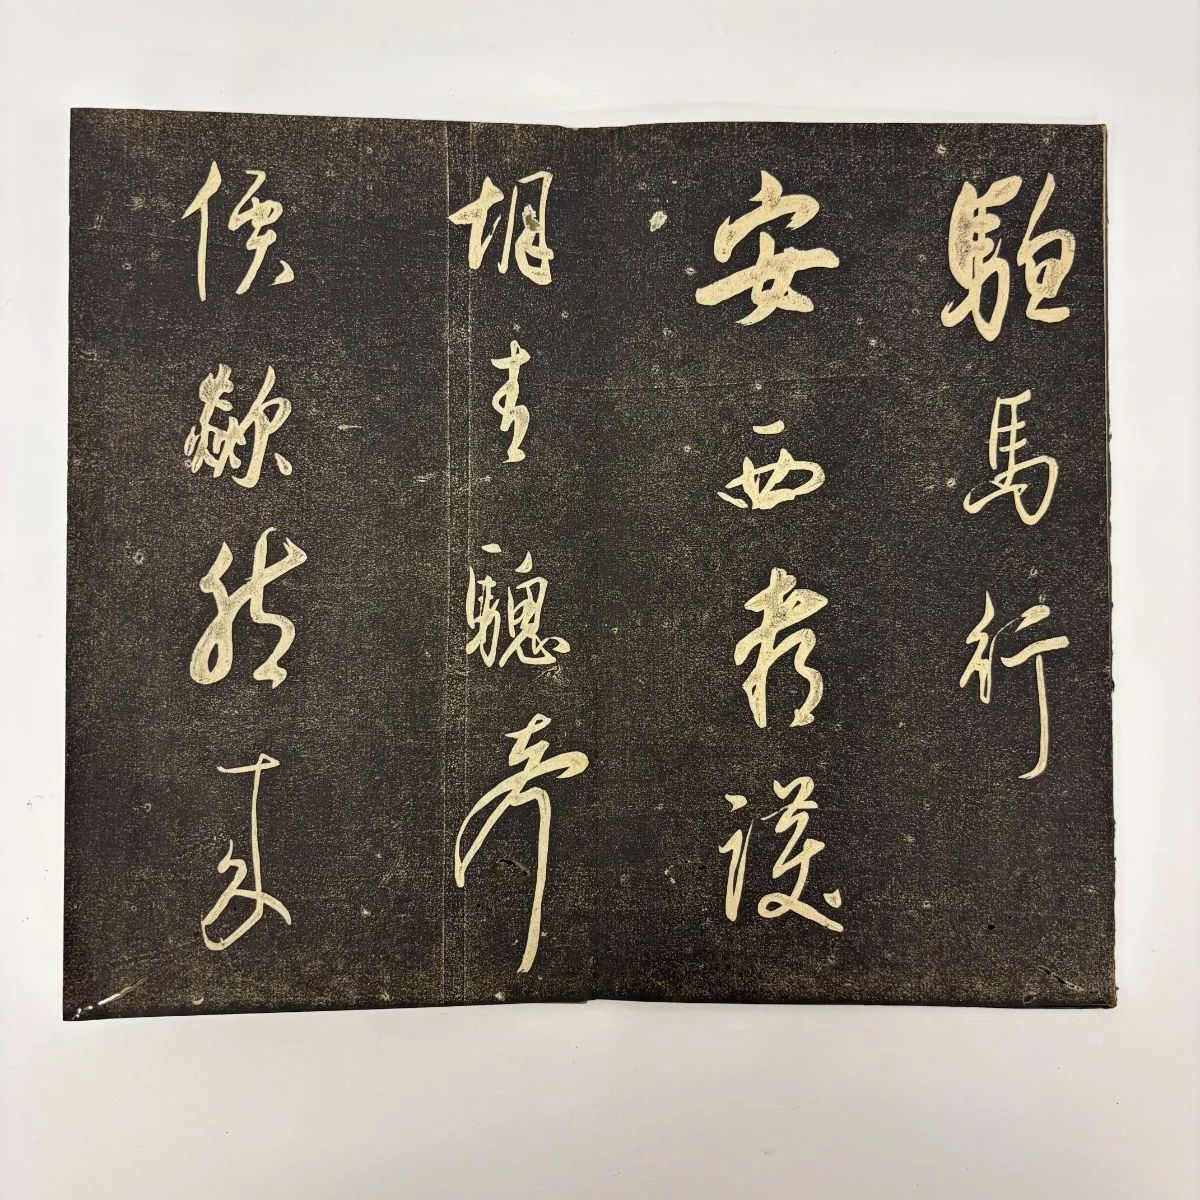 驄馬行
安西都護
胡青驄声
價歘然來